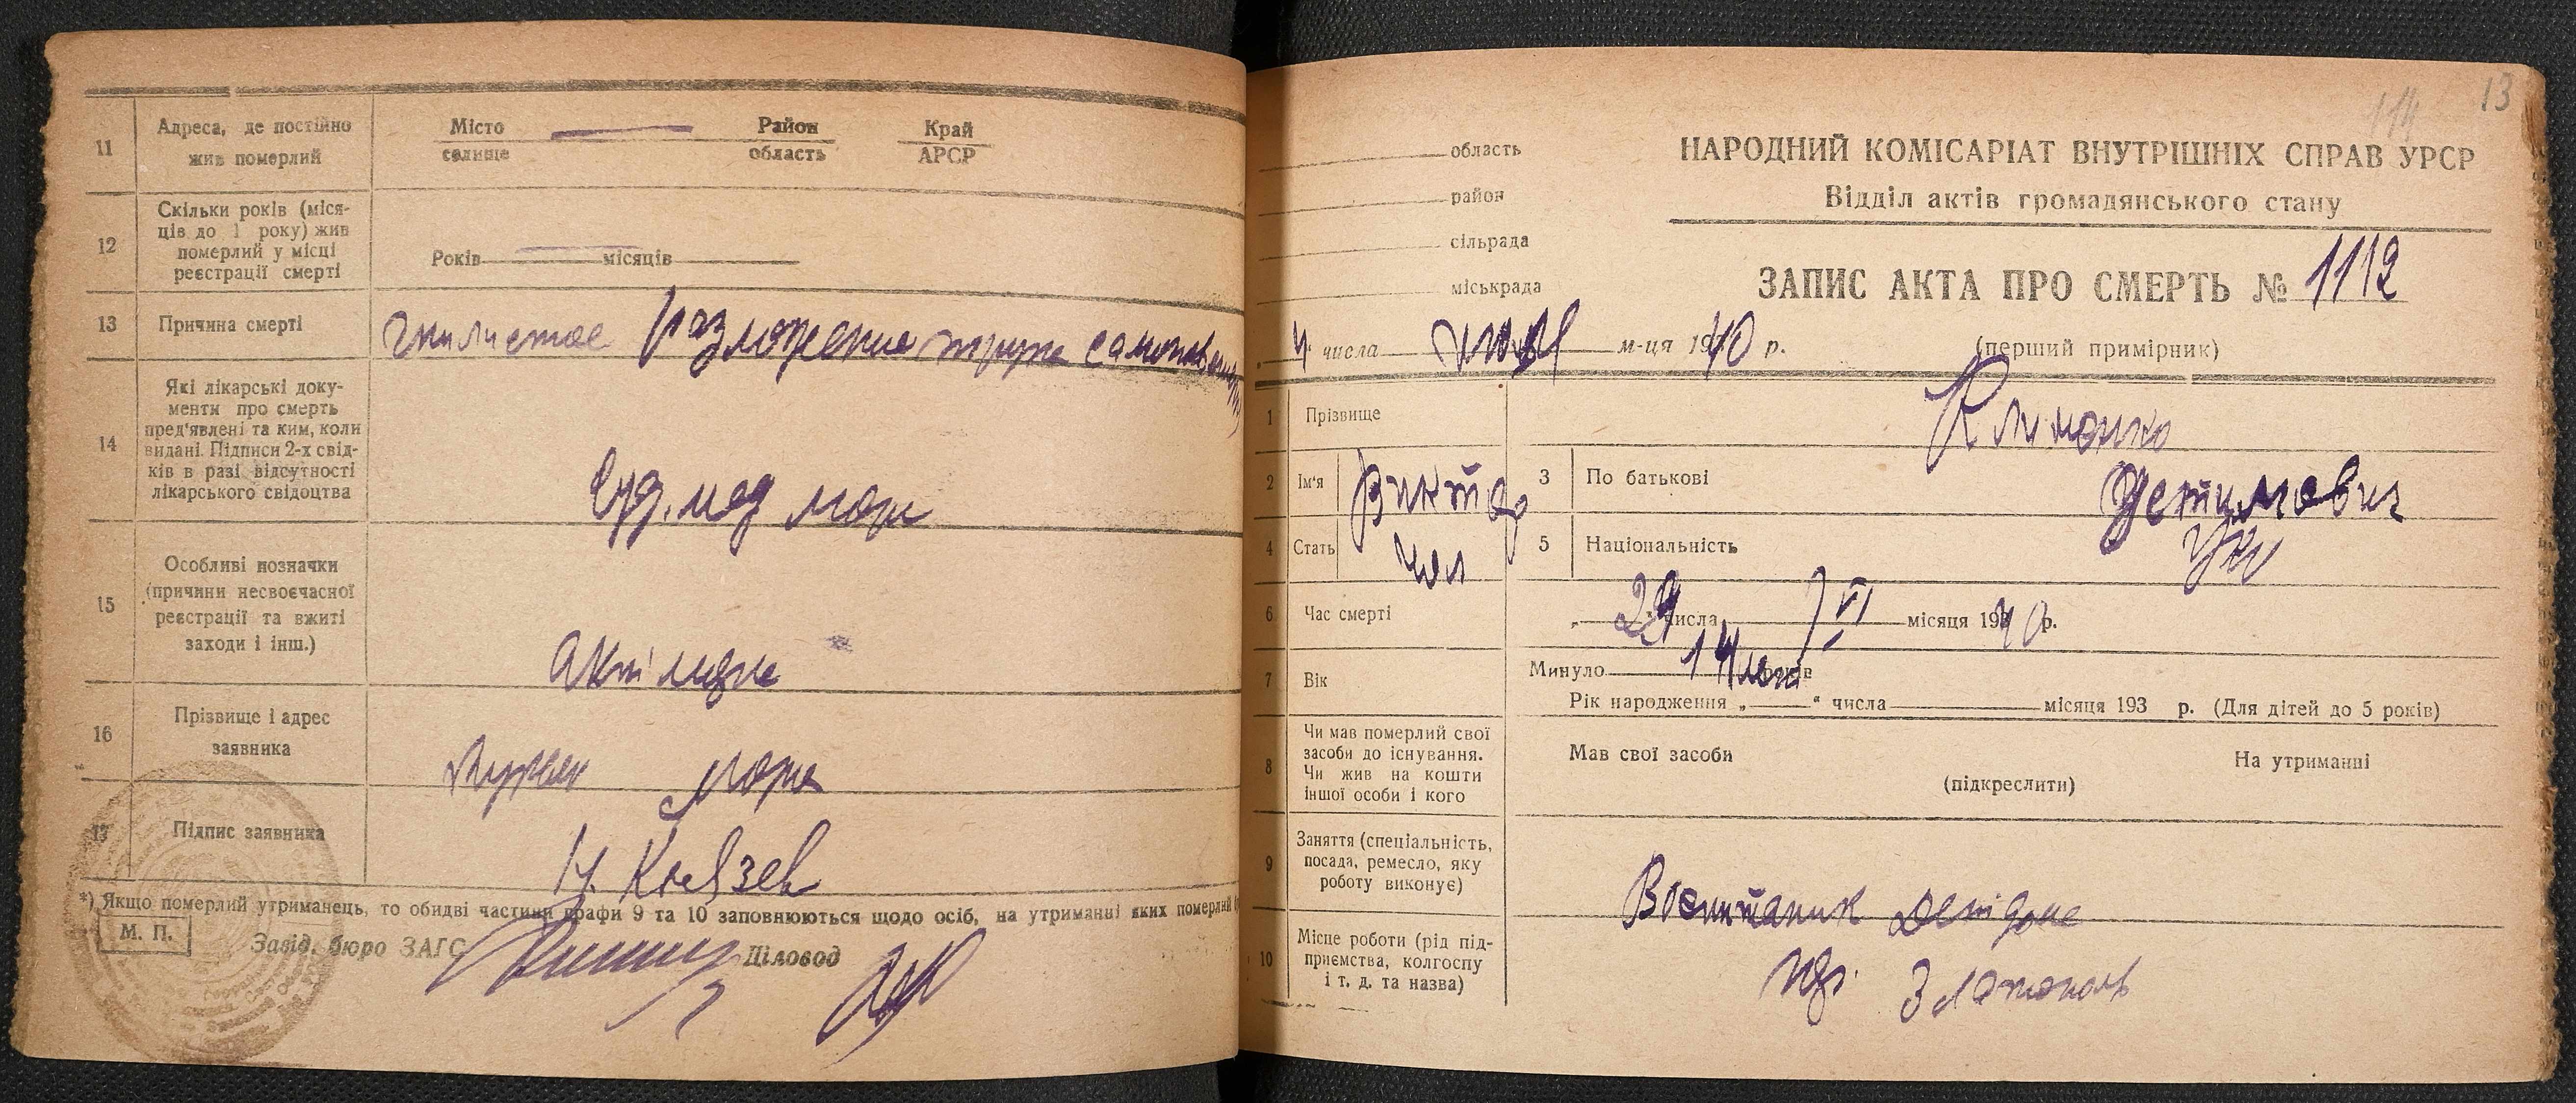 11 Адреса, де постійно жив померлий
Місто селище Район область Край АРСР
12 Скільки років (міся-
ців до 1 року) жив
померлий у місці
реєстрації смерті
Років місяців
13 Причина смерті
гнилистое разложение трупа
14 Які лікарські доку-
менти про смерть
пред'явлені та ким, коли
видані. Підписи 2-х свід-
ків в разі відсутності
лікарського свідоцтва
Суд. мед морг
15 Особливі позначки
(причини несвоєчасної
реєстрації та вжиті
заходи і інш.)
16 Прізвище і адрес
заявника
морга
17 Підпис заявника
Князев
*) Якщо померлий утриманець, то обидві частини графи 9 та 10 заповнюються щодо осіб, на утриманні яких померлий
М. П.
Завід. бюро ЗАГС Діловод
13
114
НАРОДНИЙ КОМІСАРІАТ ВНУТРІШНІХ СПРАВ УРСР
Відділ актів громадянського стану
область
район
сільрада
міськрада
ЗАПИС АКТА ПРО СМЕРТЬ № 1112
4 числа м-ця 1940 р. (перший примірник)
1 Прізвище Клименко
2 Ім'я Виктор 3 По батькові
4 Стать чол 5 Національність Укр
6 Час смерті „ 29 числа VI місяця 1940 р.
7 Вік
Минуло 14 лет років
Рік народження „ “ числа місяця 193 р. (Для дітей до 5 років)
8 Чи мав померлий свої
засоби до існування.
Чи жив на кошти
іншої особи і кого
Мав свої засоби На утриманні
(підкреслити)
9 Заняття (спеціальність,
посада, ремесло, яку
роботу виконує)
Воспитаник детдома
10 Місце роботи (рід під-
приємства, колгоспу
і т. д. та назва)
Златополь